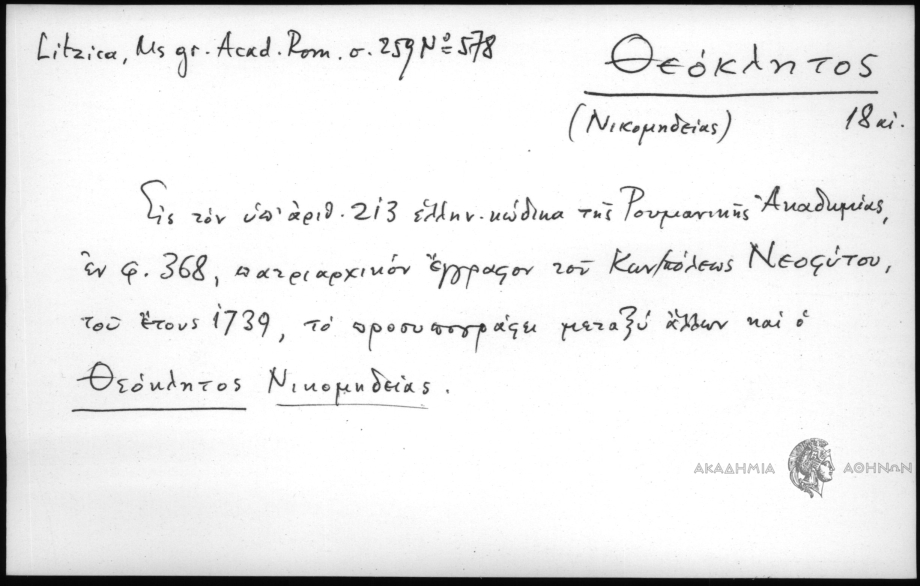 Litzica, Ms gr. Acad. Rom. σ. 259 Nº 578
Θεόκλητος
(Νικομηδείας) 18 αἰ.
Εἰς τὸν ὑπ' ἀριθ. 213 ἑλλην. κώδικα τῆς Ρουμανικῆς Ἀκαδημίας,
ἐν φ. 368, πατριαρχικὸν ἔγγραφον τοῦ Κων/πόλεως Νεοφύτου,
τοῦ ἔτους 1739, τὸ προσυπογράφει μεταξὺ ἄλλων καὶ ὁ
Θεόκλητος Νικομηδείας.
ΑΚΑΔΗΜΙΑ ΑΘΗΝΩΝ